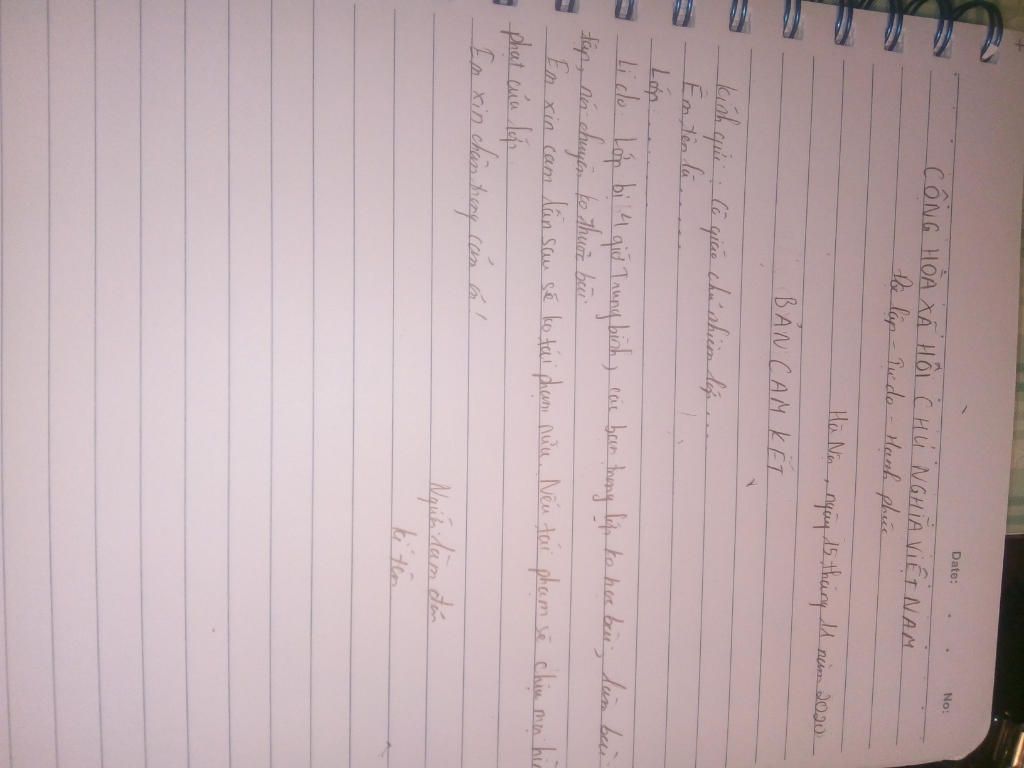 Date:
No:
CỘNG HÒA XÃ HỘI CHỦ NGHĨA VIỆT NAM
Độc lập - Tự do - Hạnh phúc
Hà Nội, ngày 15 tháng 11 năm 2020
BẢN CAM KẾT
Kính gửi: Cô giáo chủ nhiệm lớp.....
Em tên là........
Lớp............
Lí do: Lớp bị 4 giờ Trung bình, các bạn trong lớp ko học bài, làm bài
nói chuyện ko thuộc bài
Em xin cam lần sau sẽ ko tái phạm nữa. Nếu tái phạm sẽ chịu mọi hìn
phạt của lớp.
Em xin chân trọng cảm ơn!
Người làm đơn
kí tên